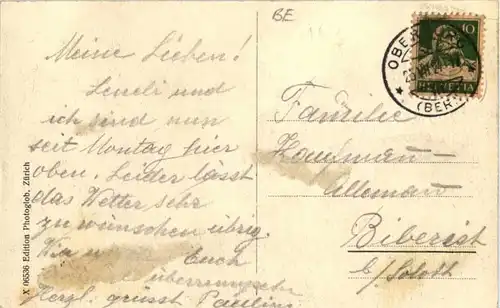 BE
Meine Lieben!
Leneli und
ich sind nun
seit Montag hier
oben. Leider lässt
das Wetter sehr
zu wünschen übrig.
Euch
Herzl. grüsst Pauline
10
HELVETIA
OBER
(BERN)
Familie
Kaufmann-
Allemann
Biberist
b/Soloth
Y 06536 Edition Photoglob, Zürich